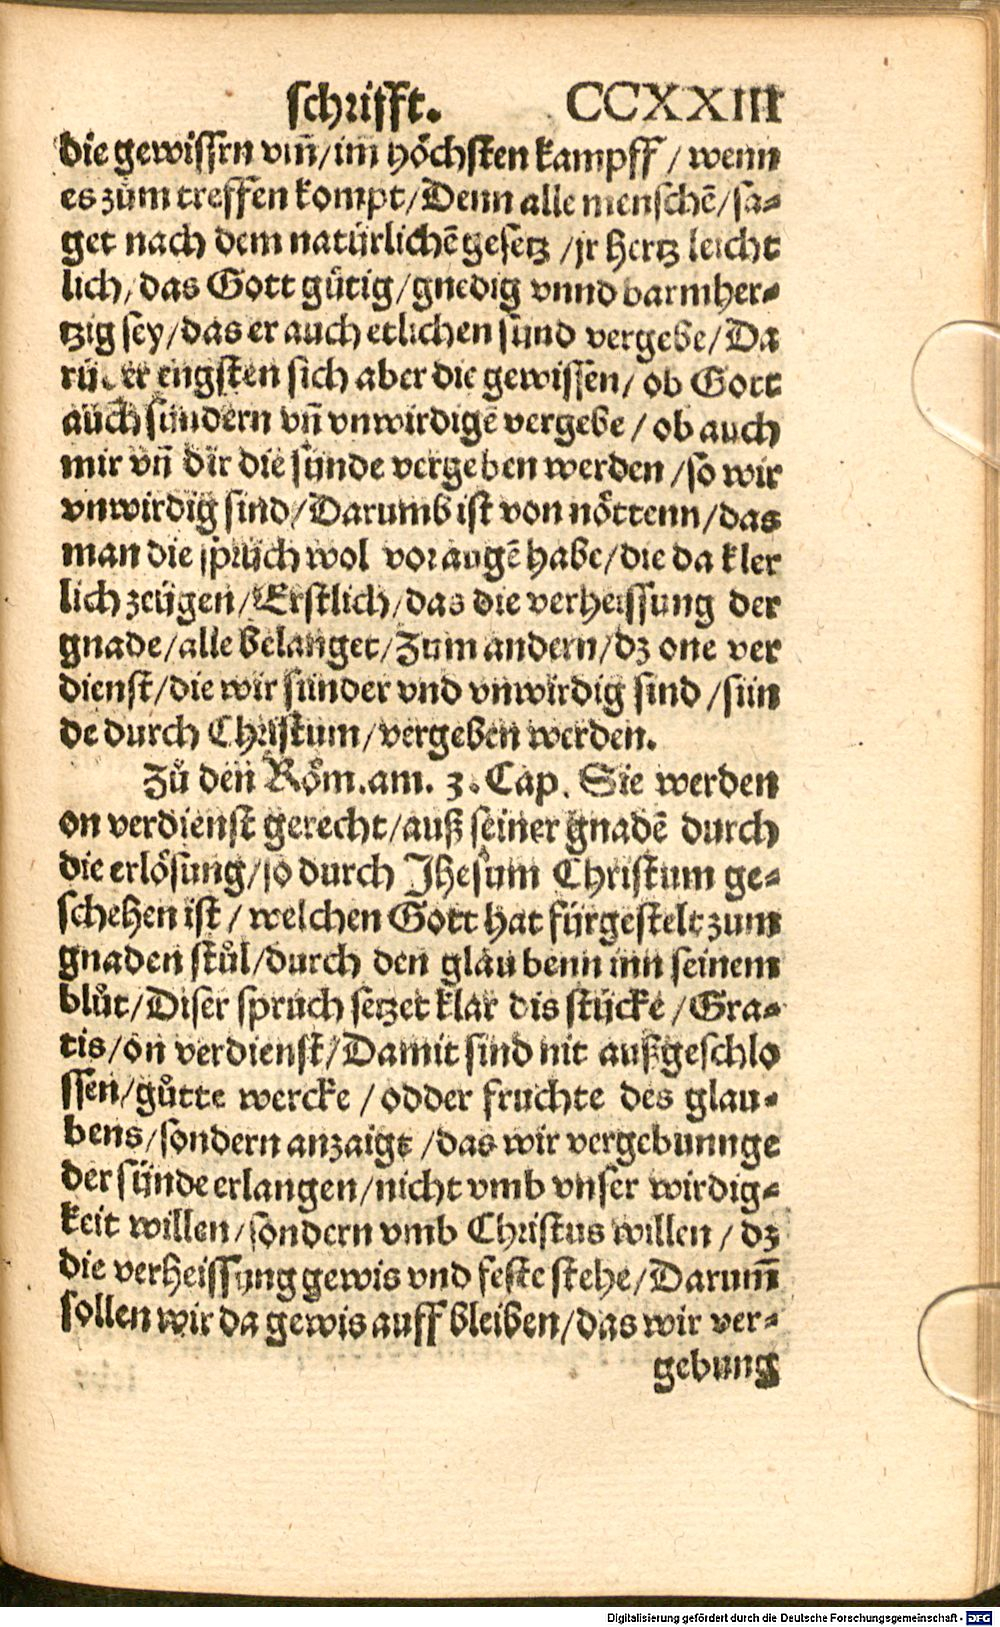 schrifft. CCXXIII
die gewissen vm̃/im höchsten kampff / wenn
es zům treffen kompt/Denn alle menschẽ/sa-
get nach dem natürlichẽ gesetz /jr hertz leicht
lich/das Gott gütig/gnedig vnnd barmher-
tzig sey/das er auch etlichen sünd vergebe/Da
rüber engsten sich aber die gewissen/ ob Gott
auch sündern vñ vnwirdigẽ vergebe / ob auch
mir vñ dir die sünde vergeben werden /so wir
vnwirdig sind/Darumb ist von nöttenn/das
man die sprüch wol vor augẽ habe/die da kler
lich zeügen/Erstlich/das die verheissung der
gnade/alle belanget/Zum andern/dz one ver
dienst/die wir sünder vnd vnwirdig sind /sün
de durch Christum/vergeben werden.
Zů den Röm.am. 3. Cap. Sie werden
on verdienst gerecht/auß seiner gnadẽ durch
die erlösung/so durch Jhesum Christum ge-
schehen ist / welchen Gott hat fürgestelt zum
gnaden stůl/durch den glaubenn inn seinem
blůt/Diser spruch setzet klar dis stücke /Gra-
tis/on verdienst/Damit sind nit außgeschlo
ssen/gůtte wercke / odder fruchte des glau-
bens/sondern anzaigt /das wir vergebunnge
der sünde erlangen/nicht vmb vnser wirdig-
keit willen/sondern vmb Christus willen / dz
die verheissung gewis vnd feste stehe/Darum̃
sollen wir da gewis auff bleiben/das wir ver-
gebung
Digitalisierung gefördert durch die Deutsche Forschungsgemeinschaft - DFG